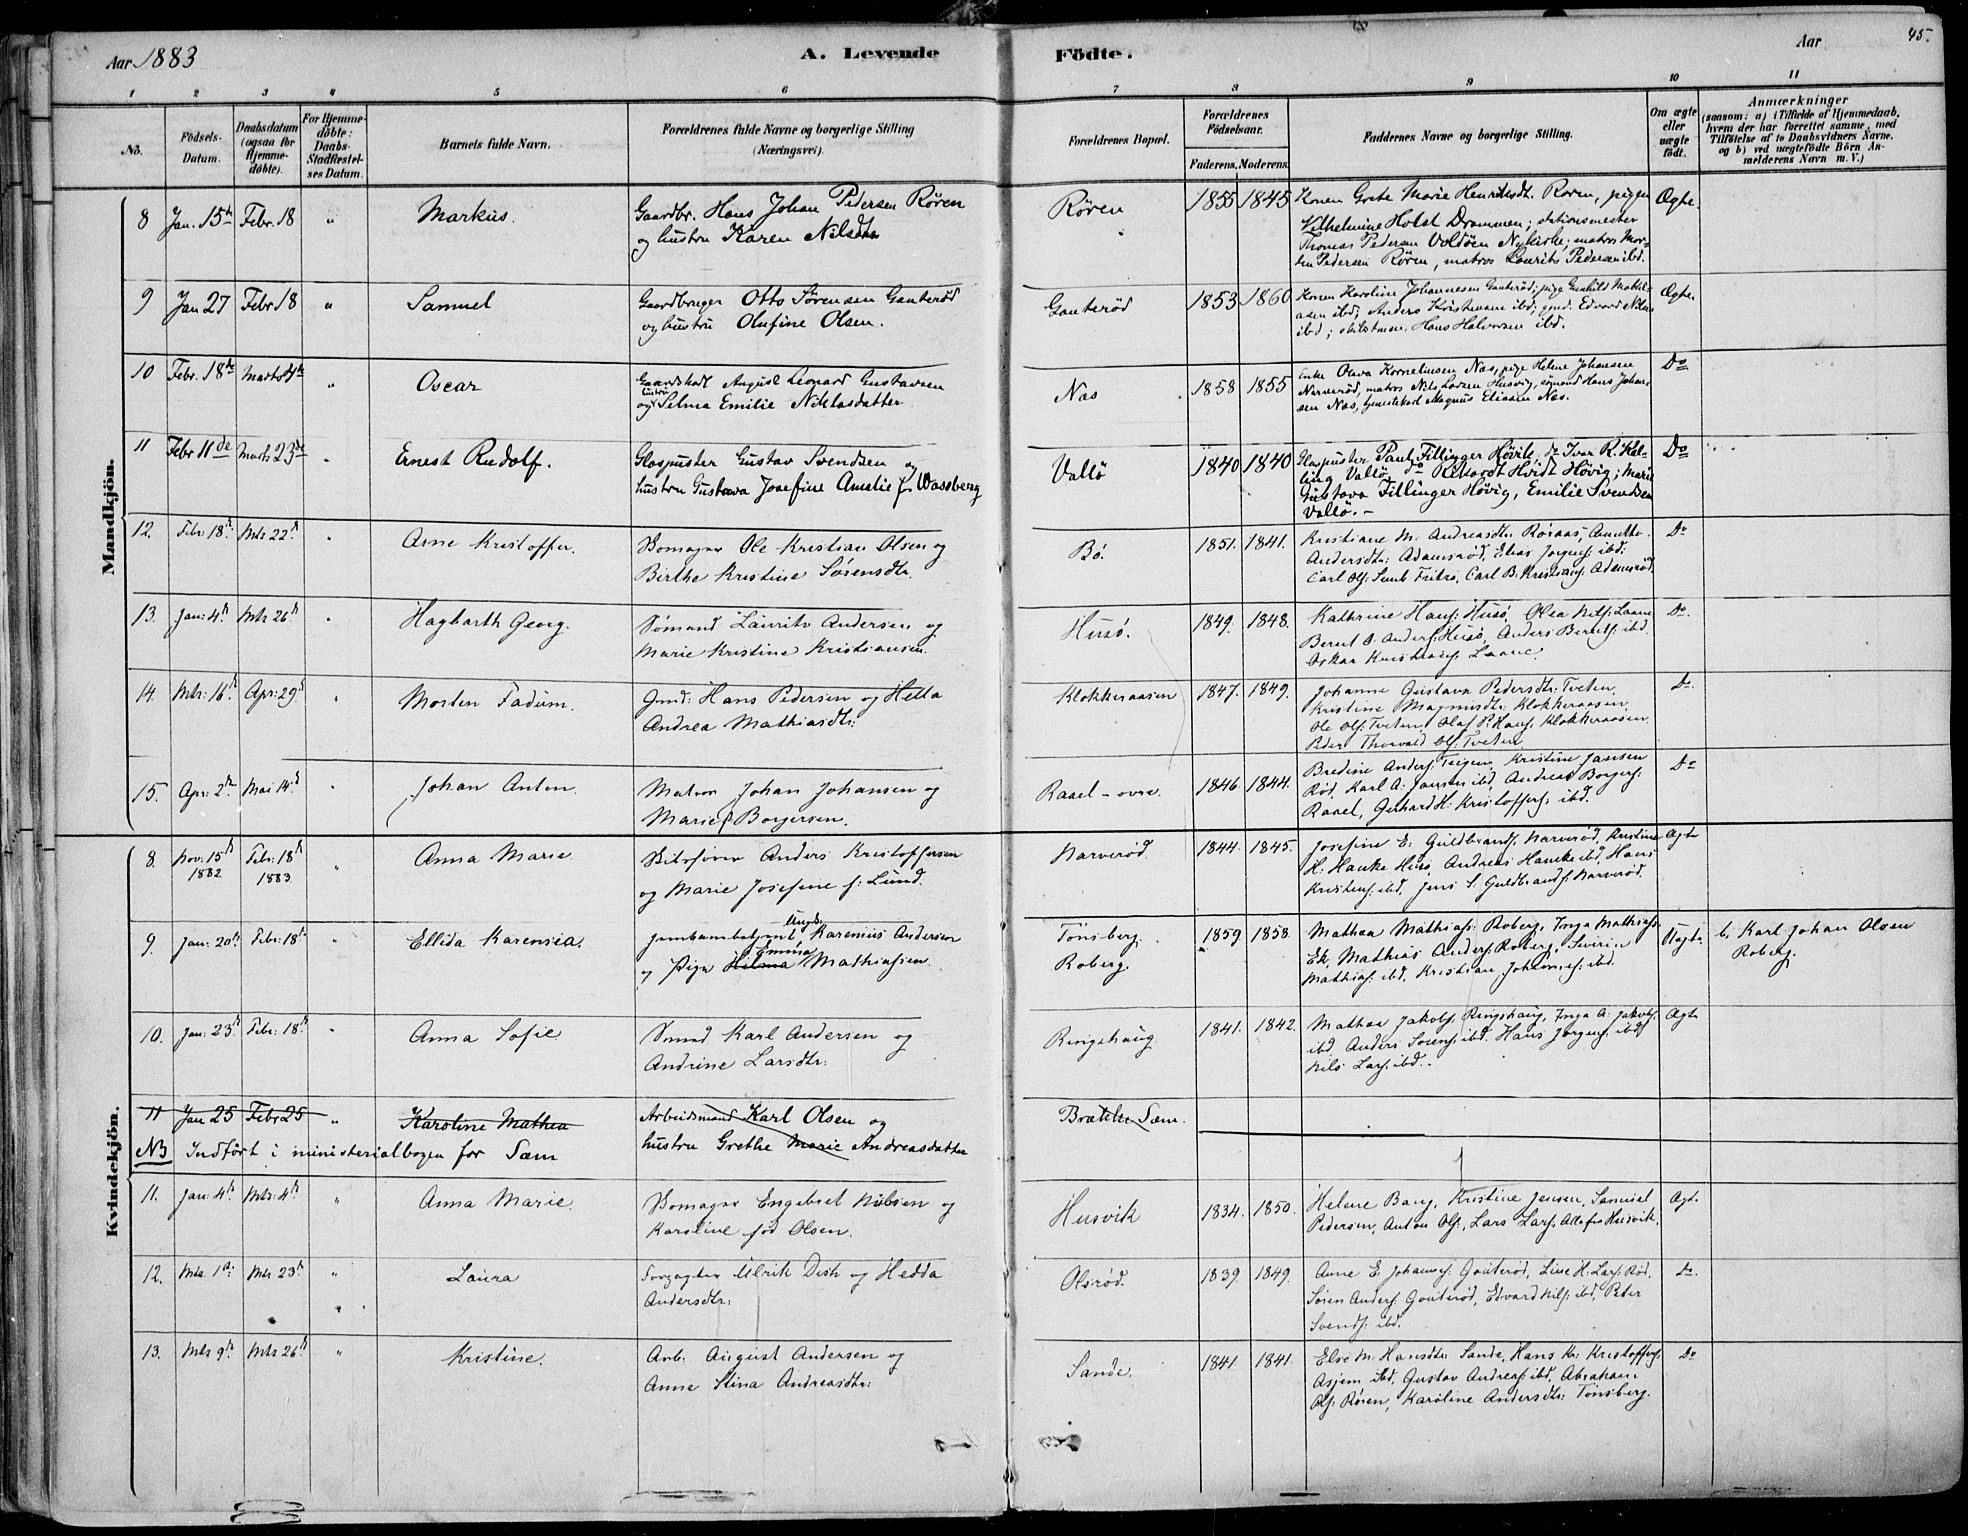 Aar 1883
A. Levende Födte.
Aar
45.
1 2 3 4 5 6 7 8 9 10 11
No.
Födsels-Datum.
Daabsdatum (ogsaa for Hjemme-döbte).
For Hjemme-döbte: Daabs-Stadfæstel-ses Datum.
Barnets fulde Navn.
Forældrenes fulde Navne og borgerlige Stilling (Næringsvei).
Forældrenes Bopæl.
Forældrenes Födselsaar.
Faderens. Moderens.
Faddernes Navne og borgerlige Stilling.
Om ægte eller uægte födt.
Anmærkninger
(saasom: a) i Tilfælde af Hjemmedaab, hvem der har forrettet samme, med Tilföielse af to Daabsvidners Navne, og b) ved uægtefödte Börn An-melderens Navn m. V.)
Mandkjön.
8 Jan. 15de Febr. 18 " Markus. Gaardbr. Hans Johan Pedersen Røren
og hustru Karen Nilsdtr
Røren 1855 1845 Konen Grete Marie Henriksdt. Røren, pigen
Vilhelmine Holst Drammen; stationsmester
Thomas Pedersen Valdöen Nykirke; matros Mor-
ten Pedersen Røren, matros Laurits Pedersen ibd.
Ægte.
9 Jan 27 Febr 18 " Samuel Gaardbruger Otto Sørensen Gauterød
og hustru Olufine Olsen.
Gauterød 1853 1860 Konen Karoline Johannesen Gauterød; pige Gunhild
ibd; Anders Kristensen ibd; gmd. Edvard Nilsen
ibd; Hans Halvorsen ibd.
Ægte.
10 Febr. 18de Marts " Oscar Gaardskarl August Leonard Gustavsen
og hustru Selma Emilie Niklasdatter
Nas 1858 1855 Enke Olava Kornelinsen Nas, pige Helene Johansen
Narverød, matros Nils Larsen Husvig, sömand Hans Johan-
sen Nas, tjenestekarl Magnus Eliasen Nas.
Do
11 Febr 11de Marts 23de " Ernest Rudolf. Glaspuster Gustav Svendsen og
hustru Gustava Josefine Amelie f. Wassberg
Vallö 1840 1840 Glaspuster Paul Fillinger Hövik, do Ivar R. Kal-
ling Vallö, do Rikardt Hvidt Hövig; Marie
Gustava Fillinger Hövig, Emilie Svendsen
Vallö.-
Do
12. Febr: 18de Mts 22d " Arne Kristoffer. Bomager Ole Kristian Olsen og
Birthe Kristine Sørensdtr.
Bö. 1851. 1841. Kristiane M. Andreasdtr: Röraas, Anette
Andersdtr: Adamsröd, Elias Jørgens: ibd:
Carl Ols: Fritzø, Carl B. Kristians: Adamsröd
Do
13. Jan: 4d Mts 26d " Hagbarth Georg. Sömand Laurits Andersen og
Marie Kristine Kristiansen.
Husö. 1849. 1848. Kathrine Hans: Husö, Olea Nils: Laane
Bernt A. Anders: Husö, Anders Bernts: ibd.
Oskar Kristians: Laane.
Do.
14. Mts: 16d Apr: 29d " Morten Fadum. Gmd: Hans Pedersen og Hella
Andrea Mathiasdtr:
Klokkeraasen 1847. 1849. Johanne Gustava Pedersdtr: Tveten,
Kristine Magnusdtr: Klokkeraasen,
Ole Ols: Tveten, Olaf P. Hans: Klokkeraasen
Peder Thorvald Ols: Tveten
Do.
15. Apr: 2de Mai 14d " Johan Anton. Matros Johan Johansen og
Marie Borgersen.
Raael - övre. 1846. 1844. Bredine Anders: Teigen, Kristine Jansen
Röd, Karl A: Jansen ibd, Andreas Borgers:
Raael, Gerhard H: Kristoffers: ibd.
Do
Kvindekjön.
8. Nov: 15d 1882 Febr: 18d 1883 " Anna Marie. Skibsfører Anders Kristoffersen
og Marie Josefine f: Lund.
Narverød. 1844. 1845. Josefine E: Guldbrands: Narveröd, Kristine
H: Hanke Husö, Andreas Hancke ibd, Hans
Kristens: ibd, Jens S: Guldbrands: Narveröd.
Ægte
9. Jan: 20d Febr: 18d " Ellida Karensia. Jernbanebetjent Ungk: Karenius Andersen
og Pige Hilma Emma Mathiasen.
Tönsberg.
Roberg. 1859 1858 Mathea Mathias: Roberg, Inga Mathias:
Ek, Mathias Anders: Roberg, Severin
Mathias: ibd, Kristian Johannes: ibd.
Uægte b, Karl Johan Olsen
Roberg.
10. Jan: 23d Febr: 18d " Anna Sofie Sömd Karl Andersen og
Andrine Larsdtr:
Ringshaug 1841. 1842. Mathea Jakobs: Ringshaug, Inga A: Jakobs:
ibd, Anders Sörens: ibd. Hans Jørgens: ibd,
Nils Lars: ibd.
Ægte
11 Jan 25 Febr 25 " Karoline Mathea Arbeidsmand Karl Olsen og
hustru Grethe Marie Andreasdatter
Sæm.
NB Indført i ministerialbogen for Sæm
11. Jan: 4d Mts: 4d " Anna Marie. Bomager Engebret Nilsen og
Karoline fød Olsen.
Husvik 1834. 1850. Helene Bang, Kristine Jensen, Samuel
Pedersen, Anton Ols:, Lars Lars: Alle fra Husvik.
Ægte
12. Mts 1ste: Mts 23d " Laura Ulrik Dish og Hedda
Andersdtr:
Olsröd. 1839. 1849. Anne E. Johannes: Gauteröd, Line H: Lars: Röd,
Sören Anders: Gauteröd, Edvard Nils: ibd, Peter
Svends: ibd.
Do.
13. Mts 9d: Mts 26d " Kristine. Arb: August Andersen og
Anne Stina Andreasdtr:
Sande. 1841 1841. Else M: Hansdtr: Sande, Hans Kr: Kristoffers:
Asjem ibd, Gustav Andreas: ibd, Abraham
Ols: Røren, Karoline Andersdtr: Tönsberg.
Do